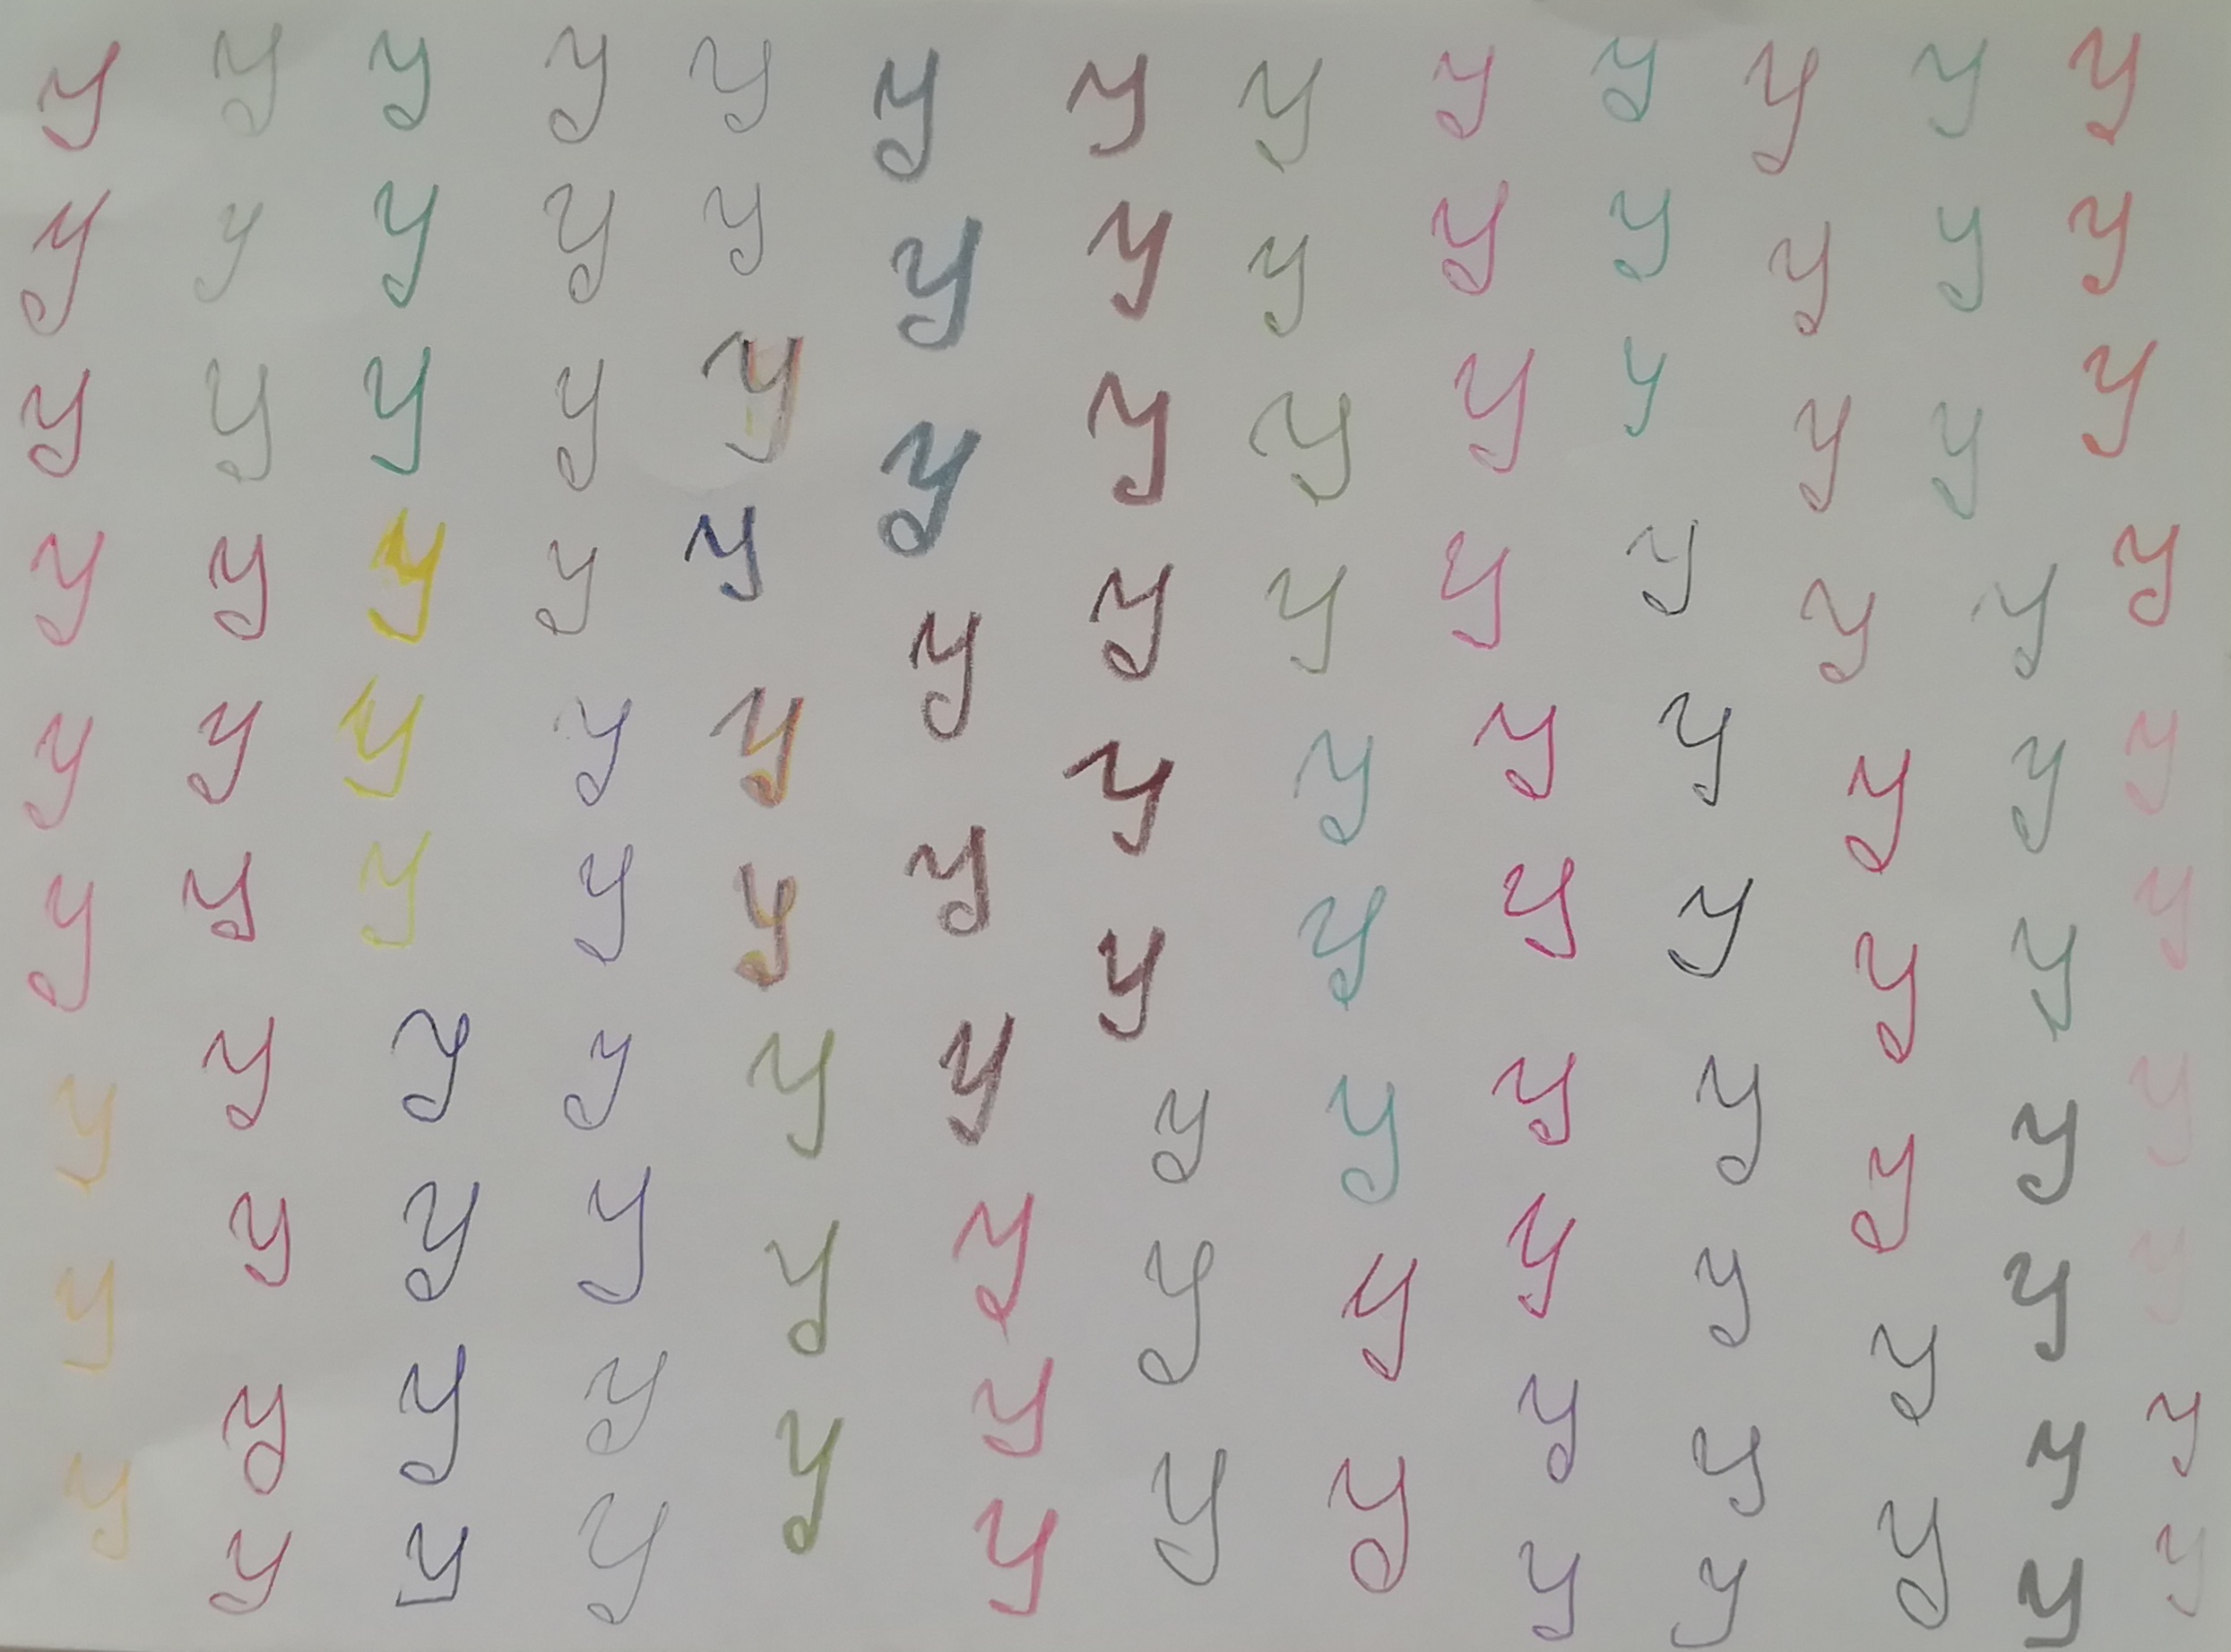 y y y y y y y y y y y y y
y y y y y y y y y y y y y
y y y y y y y y y y y y y
y y y y y y y y y y y y y
y y y y y y y y y y y y y
y y y y y y y y y y y y y
y y y y y y y y y y y y y
y y y y y y y y y y y y y
y y y y y y y y y y y y y
y y y y y y y